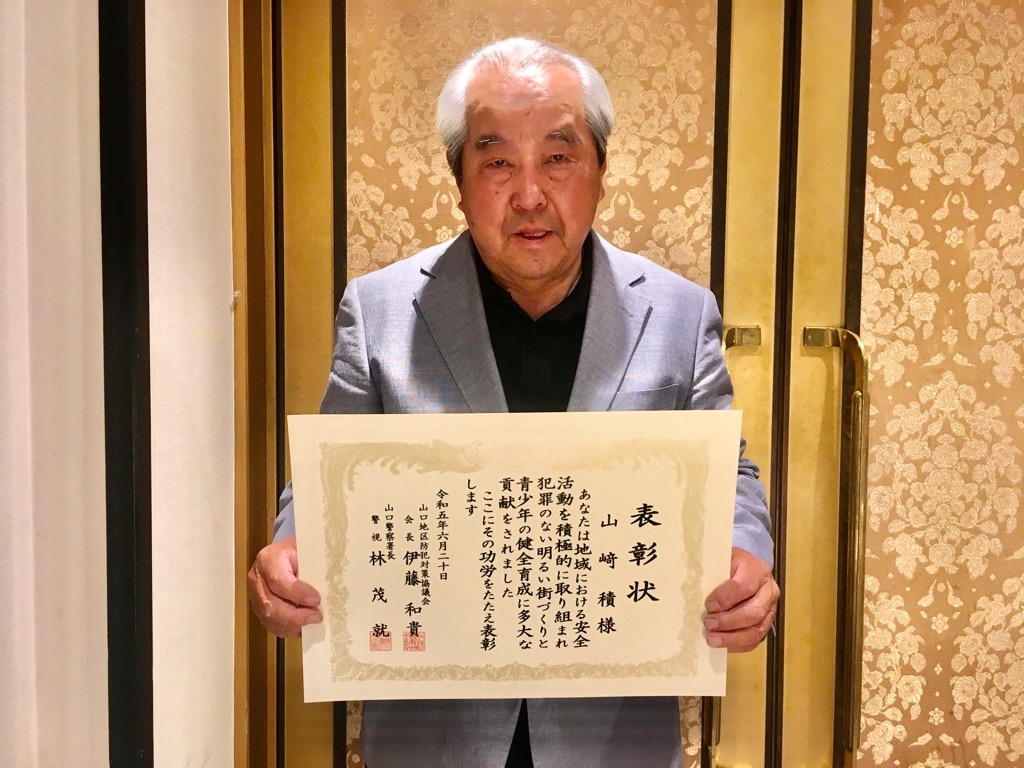 表彰状
山﨑積様
あなたは地域における安全
活動を積極的に取り組まれ
犯罪のない明るい街づくりと
青少年の健全育成に多大な
貢献をされました
ここにその功労をたたえ表彰
します
令和五年六月二十日
山口地区防犯対策協議会
会長 伊藤和貴
山口警察署長
警視 林茂就